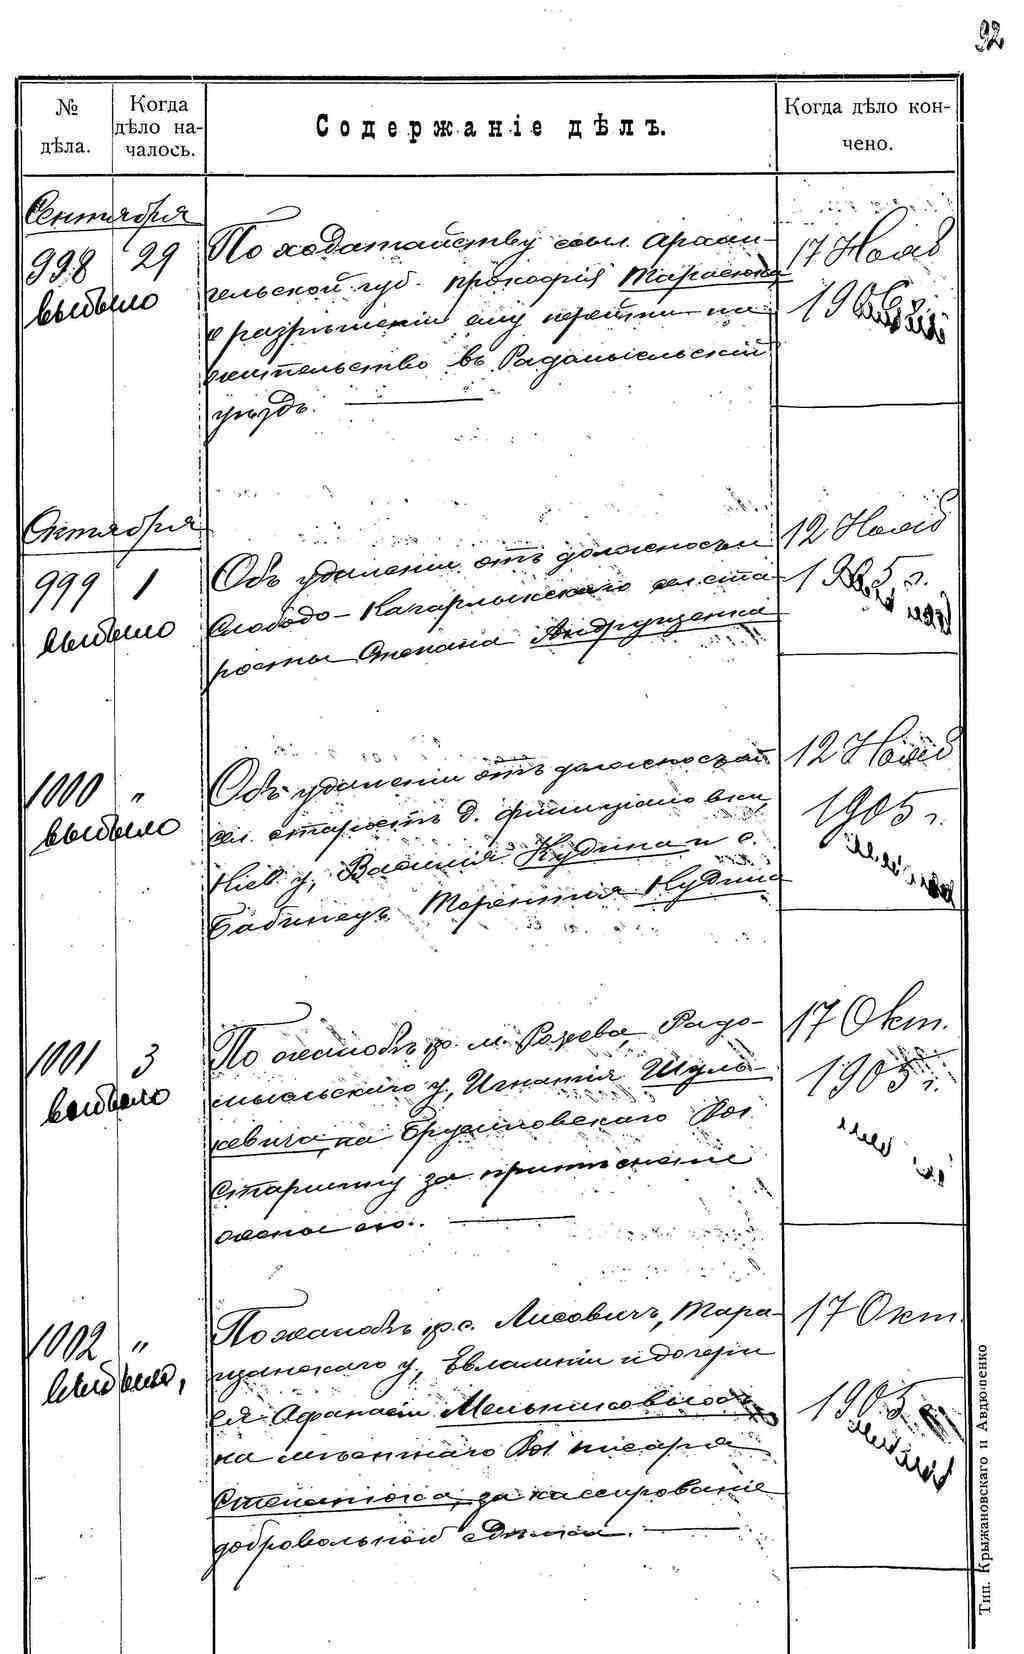 92
№ дѣла.
Когда дѣло на-
чалось.
Содержаніе дѣлъ.
Когда дѣло кон-
чено.
Сентября
998 29
выбыло
По ходатайству ссыл. Архан-
гельской губ. Прокофія Тарасюка
о разрѣшеніи ему перейти на
жительство въ Радомысльскій
уѣздъ.
17 Нояб
190
Октября
999 1
выбыло
Объ удаленіи отъ должности
Слободо-Кагарлыкскаго сел. ста-
росты Степана Андрущенка
12 Нояб
1905 г.
1000 "
выбыло
Объ удаленіи отъ должностей
сел. старостъ д.
Кіев у, Василія Кудина и с.
Бабинецъ Терентія Кудина
12 Нояб
1905 г.
1001 3
выбыло
По жалобѣ кр. м. Рожева, Радо-
мысльскаго у, Игнатія Шуль-
кевича, на Брусиловскаго Вол
Старшину за притѣсненіе
жены его.
17 Окт.
1905 г.
1002 "
выбыло,
По жалобѣ кр. с. Лисовичъ, Тара-
щанскаго у, Евлампіи и дочери
ея Афанасіи Мельниковыхъ
на мѣстнаго Вол писаря
Степанюка, за кассированіе
добровольной сдѣлки.
17 Окт.
1905
Тип. Крыжановскаго и Авдюшенко